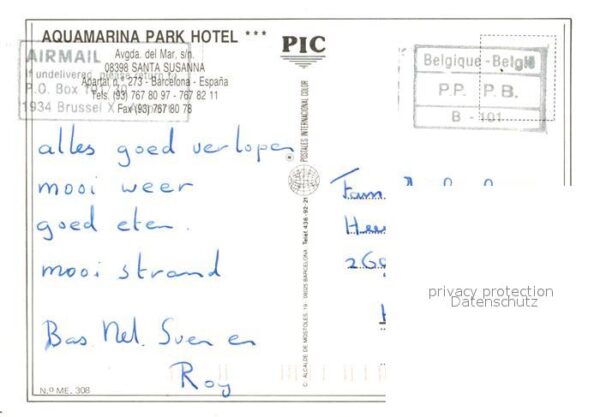 AQUAMARINA PARK HOTEL ***
Avgda. del Mar, s/n.
08398 SANTA SUSANNA
Apartat n.º 273 - Barcelona - España
Tels. (93) 767 80 97 - 767 82 11
Fax (93) 767 80 78
AIRMAIL
If undelivered, please return to
P.O. Box
1934 Brussel X
PIC
POSTALES INTERNACIONAL COLOR
C. ALCALDE DE MOSTOLES, 19 - 08025 BARCELONA - Telef. 436-92-21
Belgique - België
P.P. P.B.
B - 101
alles goed verlopen
mooi weer
goed eten.
mooi strand
Bas. Nel. Sven en
Roy
Fam.
N.º ME, 308
privacy protection
Datenschutz